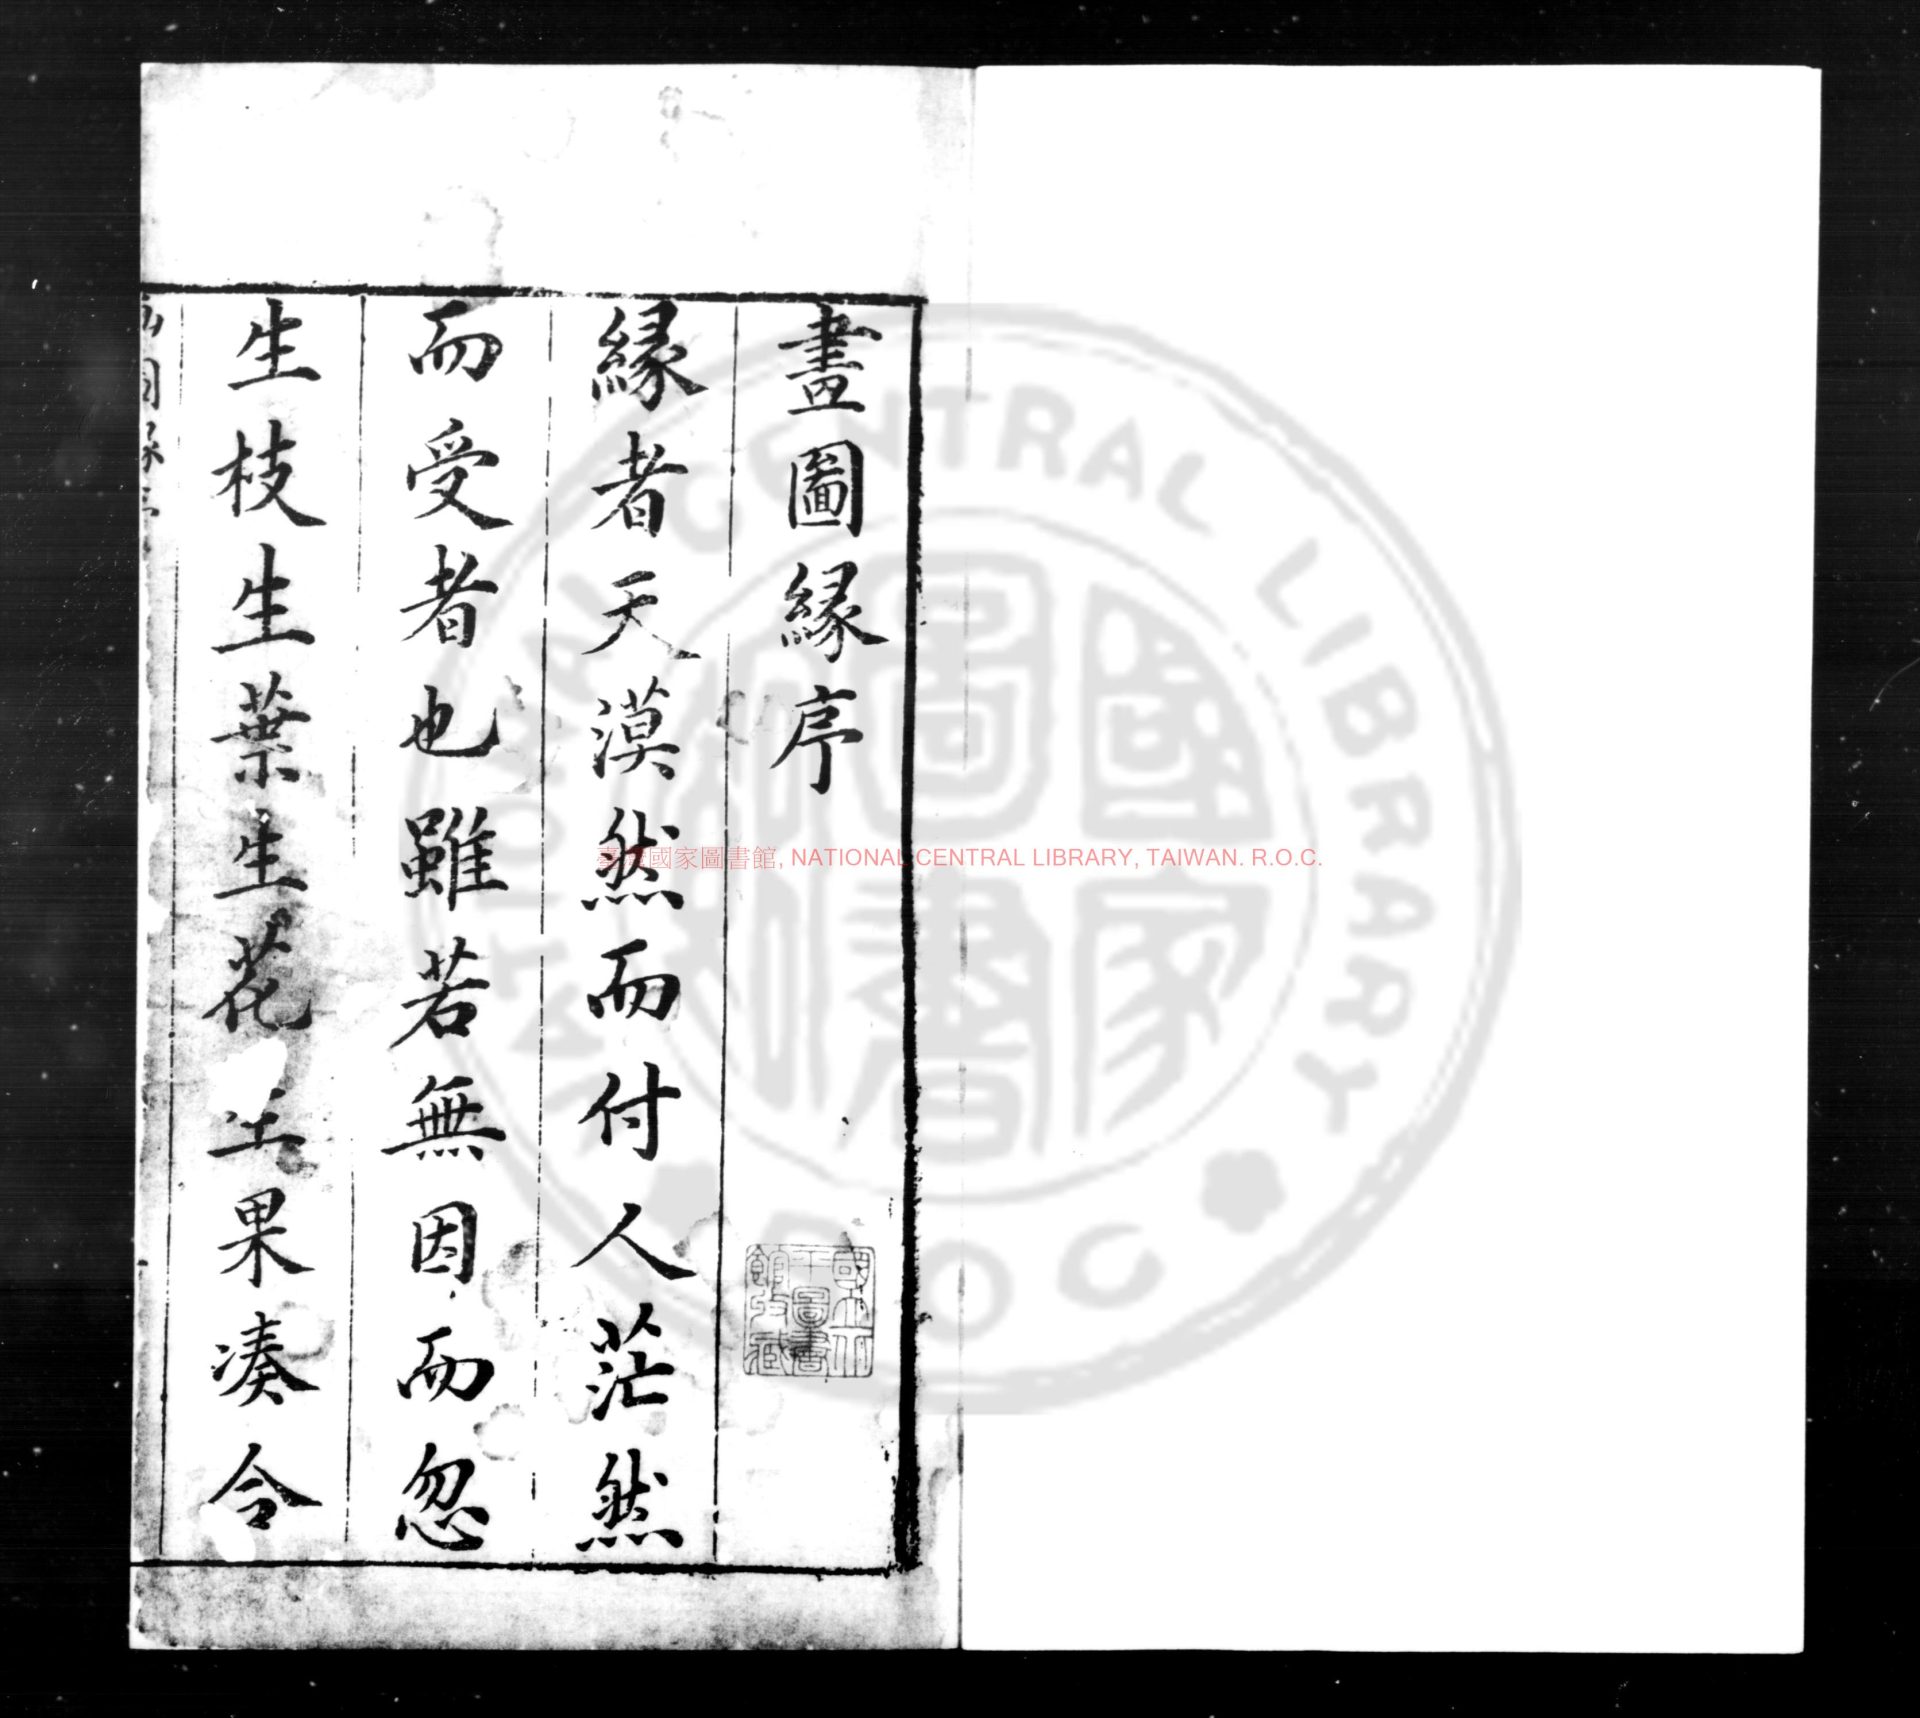 畫圖緣序
緣者天漠然而付人茫然
而受者也雖若無因而忽
生枝生葉生花生果湊合
國立中央圖書館收藏
臺灣國家圖書館, NATIONAL CENTRAL LIBRARY, TAIWAN. R.O.C.
NATIONAL CENTRAL LIBRARY
R.O.C.
國家圖書